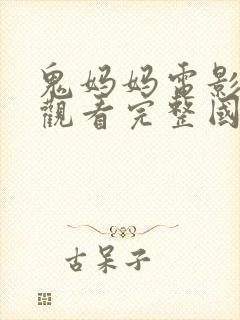 鬼妈妈電影
觀看完整國
古呆子